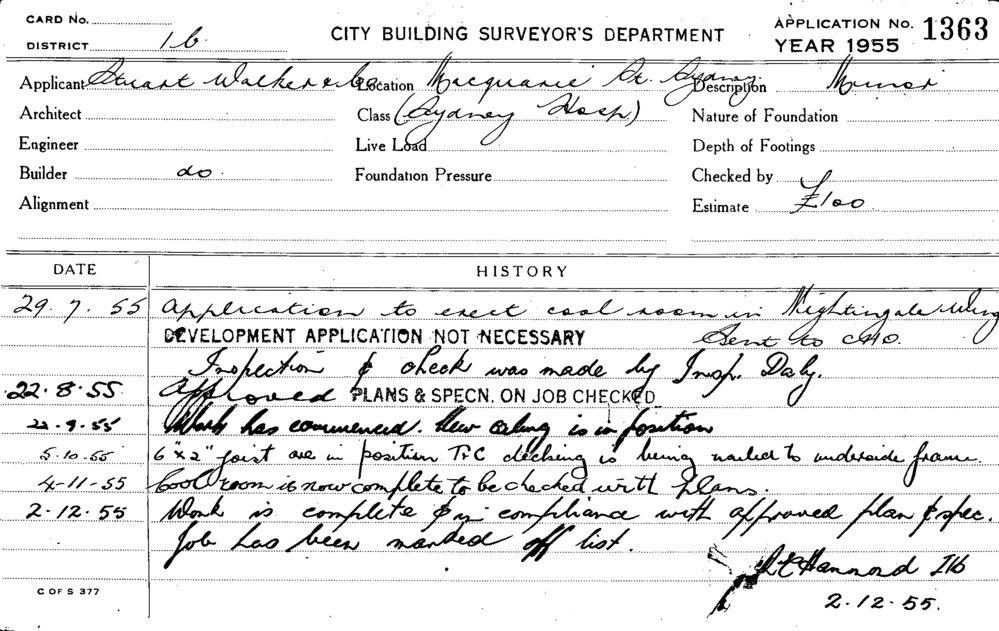 CARD No.
DISTRICT 1b
CITY BUILDING SURVEYOR'S DEPARTMENT
APPLICATION No. 1363
YEAR 1955
Applicant Stuart Walker & Co Location Macquarie St. Sydney Description Minor
Architect Class (Sydney Hosp.) Nature of Foundation
Engineer Live Load Depth of Footings
Builder do Foundation Pressure Checked by
Alignment Estimate £100
DATE HISTORY
29.7.55 Application to erect cool room in Nightingale Wing
DEVELOPMENT APPLICATION NOT NECESSARY Sent to CHO.
Inspection & check was made by Insp. Daly.
22.8.55 Approved PLANS & SPECN. ON JOB CHECKED
22.9.55 Work has commenced. New ceiling is in position
5.10.55 6"x2" joist are in position T&C decking is being nailed to underside frame.
4-11-55 Cool room is now complete to be checked with plans.
2.12.55 Work is complete & in compliance with approved plan & spec.
Job has been marked off list.
Hammond Ib
C OF S 377
2.12.55.